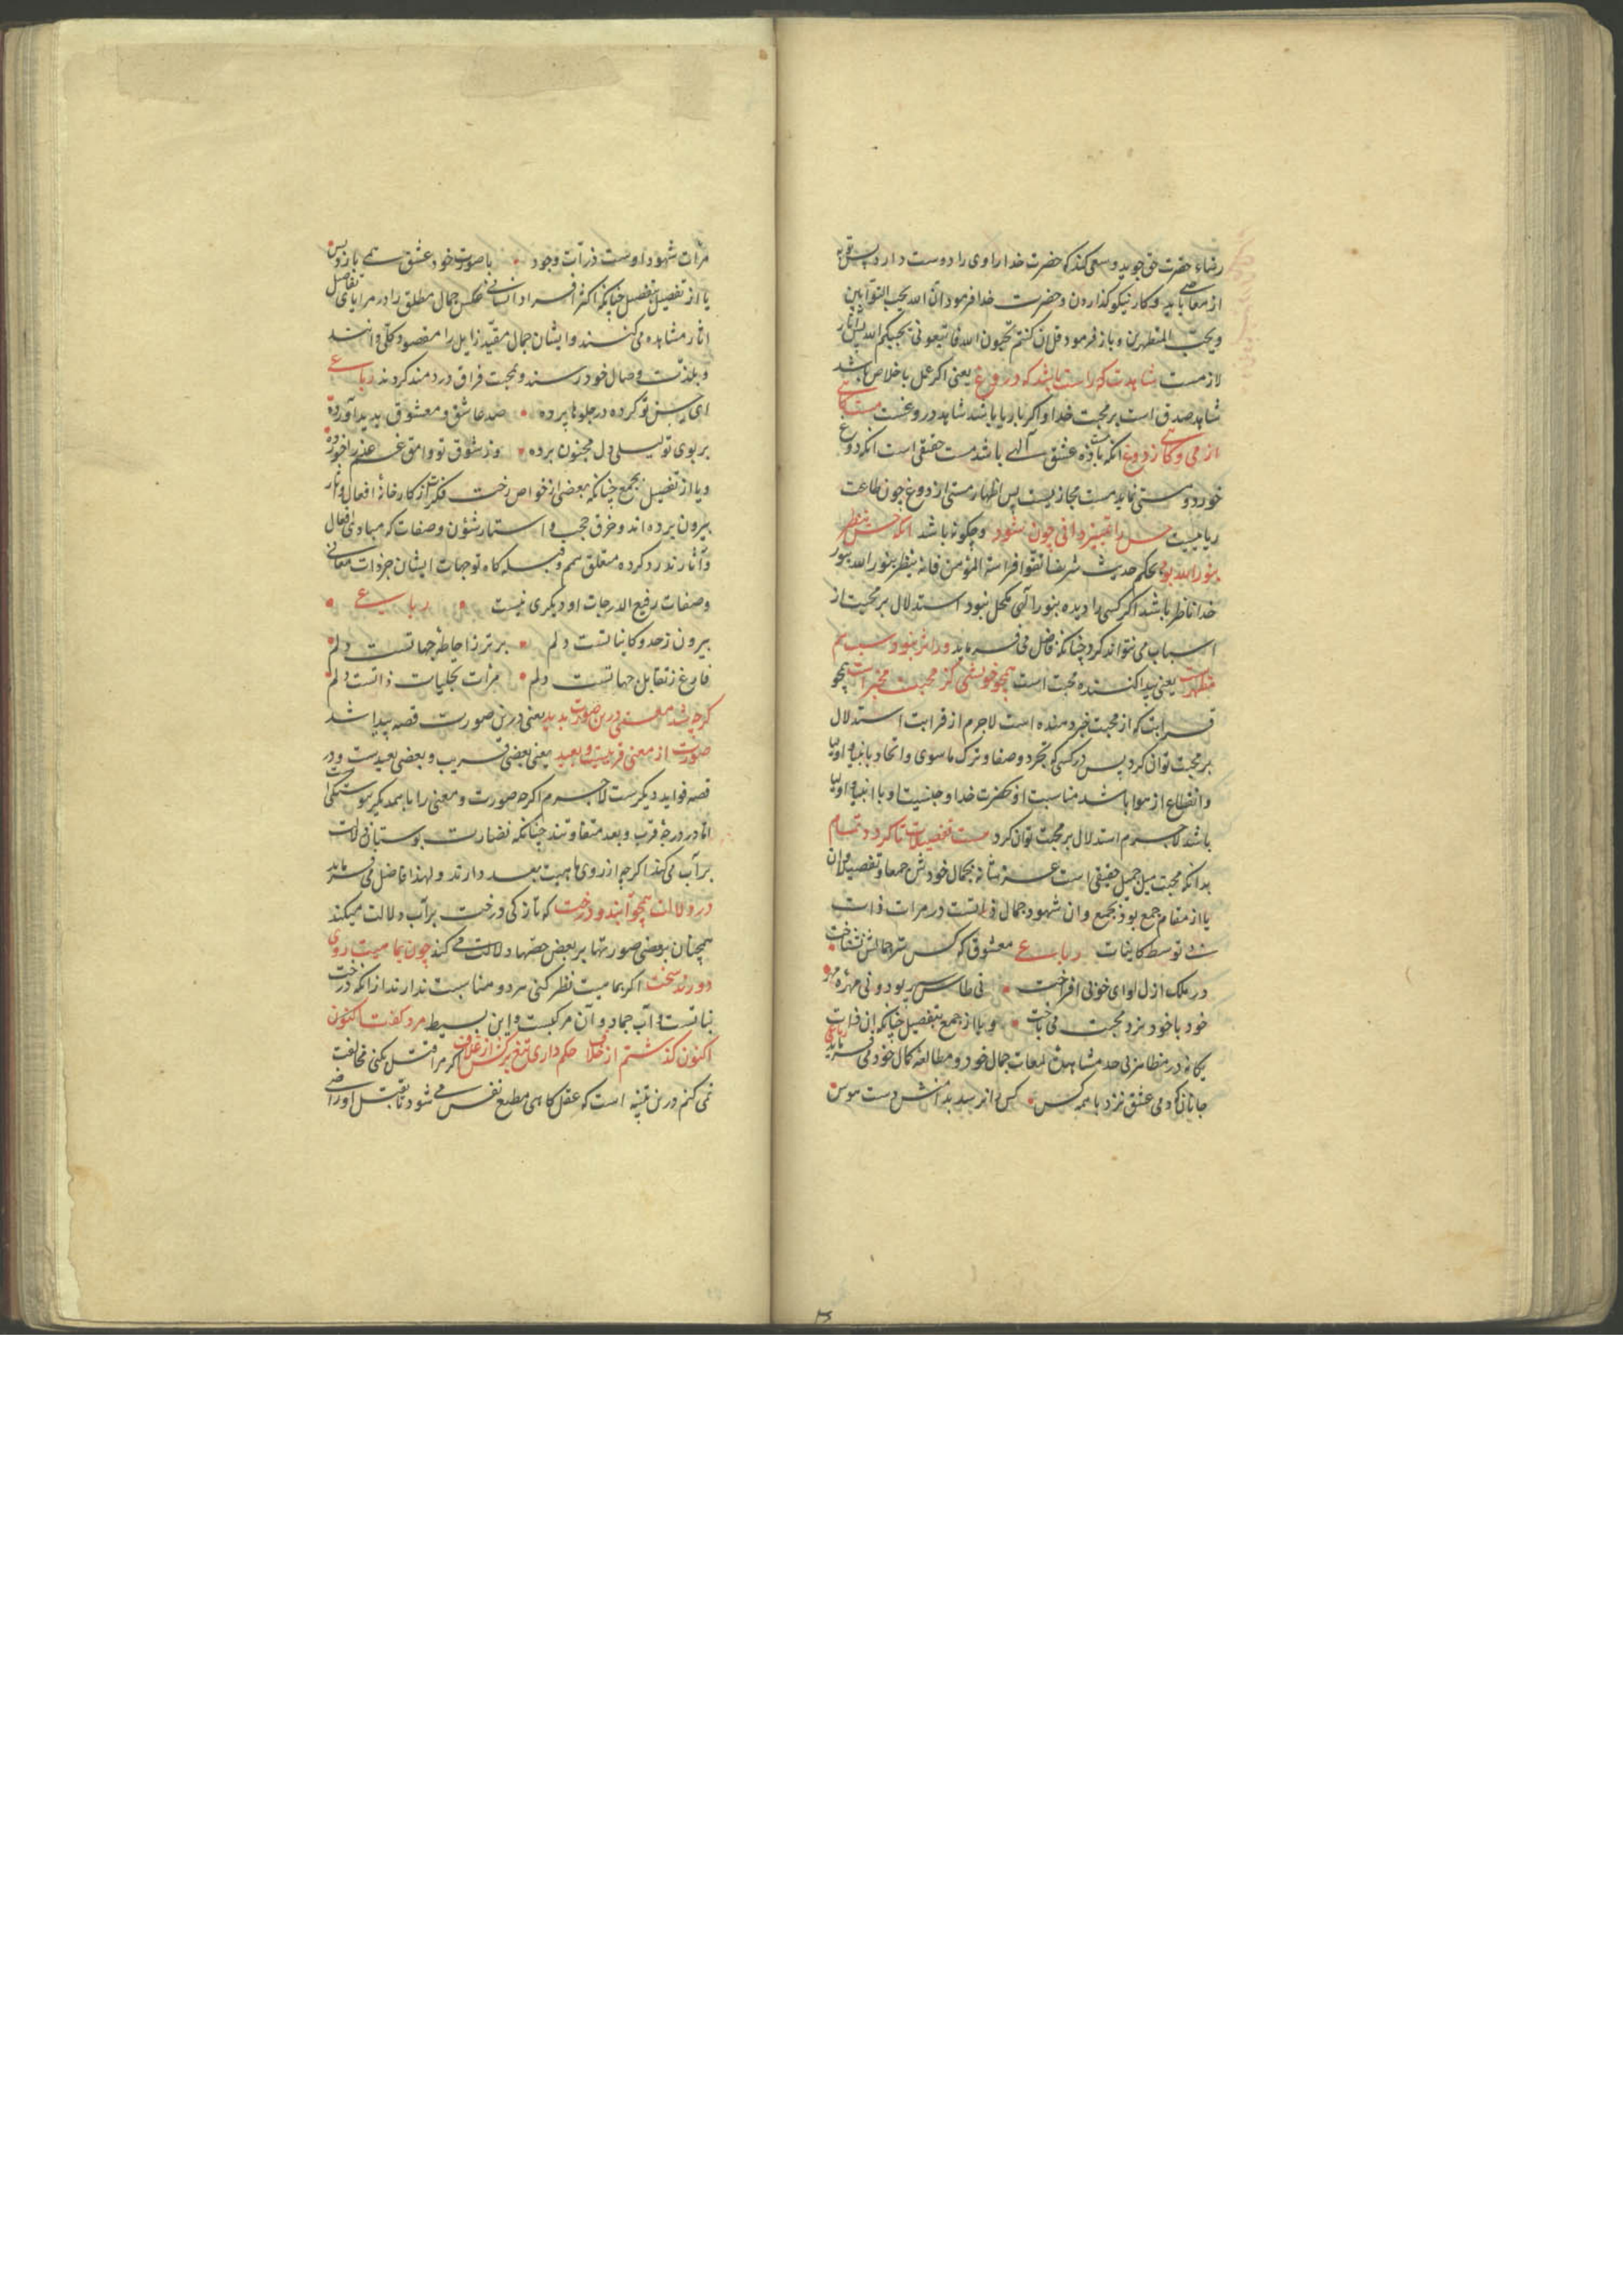 رضاء حضرت حق جوید و سعی کند که حضرت خدا را وی را دوست دارد پس توبه
از معاصی باید و کار نیکو گذاردن و حضرت خدا فرمود ان الله یحب التوابین
ویحب المتطهرین و باز فرمود قل ان کنتم تحبون الله فاتبعونی یحببکم الله پس آثار
لازمست شاهدت که راست باشد که دروغ یعنی اکر عمل باخلاص باشد
شاهد صدق است بر محبت خدا و اکر با ریا باشد شاهد دروغست مست کاهی
از می و کاهی ز دوغ انکه باده عشق الهی باشد مست حقیقی است انکه دوغ
خورد و مستی نماید مست مجازیست پس اظهار مستی از دوغ چون طاعت
ریاییست حس را تمییز دانی چون شود و چکونه باشد انکه حس ینظر
بنور الله بود بحکم حدیث شریف اتقوا فراسة المؤمن فانه ینظر بنور الله بنور
خدا ناظر باشد اکر کسی را دیده بنور الهی مکحل نبود استدلال بر محبت از
اسباب می تواند کرد چنانکه فاضل می فرماید ور اثر نبود سبب هم
مظهرست یعنی پیدا کننده محبت است همچو خویشی کز محبت مخبرست همچو
قرابت که از محبت خبر دهنده است لاجرم از قرابت استدلال
بر محبت توان کرد پس در کسی که تجرد و صفا و ترک ماسوی و اتحاد با انبیا و اولیا
و انقطاع از هوا باشد مناسبت او بحضرت خدا و جنسیت او با انبیا و اولیا
باشد لاجرم استدلال بر محبت توان کرد هست تفصیلات تا کردد تمام
بدانکه محبت میل جمیل حقیقی است عز شانه بجمال خودش جمعا و تفصیلا و ان
یا از مقام جمع بود بجمع و ان شهود جمال ذاتست در مرات ذات
بی توسط کاینات رباعی معشوقه که کس سر جمالش نشناخت
در ملک ازل لوای خوبی افراخت نی طاس سپهر بود و نی مهره مهر
خود با خود نرد محبت می باخت و یا از جمع بتفصیل چنانکه ان ذات
یکانه در مظاهر بی حد مشاهده لمعات جمال خود و مطالعه کمال خود می فرماید رباعی
جانان که دم عشق زند با همه کس کس را نرسد بدامنش دست هوس
مرات شهود اوست ذرات وجود با صورت خود عشق همی بازد و بس
یا از تفصیل بتفصیل چنانکه اکثر افراد انسانی عکس جمال مطلق را در مرایای تفاصیل
اثار مشاهده می کنند و ایشان جمال مقید زایل را مقصود کلی دانند
و بلذت وصال خود رسند و بمحنت فراق دردمند کردند رباعی
ای حسن تو کرده در جلوها پرده صد عاشق و معشوق پدید آورده
بر بوی تو لیلی دل مجنون برده وز شوق تو وامق غم عذرا خورده
و یا از تفصیل بجمع چنانکه بعضی از خواص رخت فکر از کارخانه افعال و اثار
بیرون برده اند و خرق حجب و استار شؤن و صفات که مبادی افعال
و آثارند کرده متعلق همم و قبله کاه توجهات ایشان جز ذات متعالی
وصفات رفیع الدرجات او دیکری نیست رباعی
بیرون ز حدود کایناتست دلم برتر ز احاطه جهاتست دلم
فارغ ز تقابل جهاتست دلم مرات تجلیات ذاتست دلم
کرچه شد معنی درین صورت پدید یعنی درین صورت قصه پیدا شد
صورت از معنی قریبست و بعید یعنی بعضی قریب و بعضی بعیدست و در
قصه فواید دیکرست لاجرم اکرچه صورت و معنی را با همدیکر پیوستکی
اما در درجه قرب و بعد متفاوتند چنانکه نضارت بوستان دلالت
بر آب می کند اکرچه از روی ماهیت بعد دارند و لهذا فاضل می فرماید
در دلالت همچو آبند و درخت که تازکی درخت بر آب دلالت میکند
همچنان بعضی صورتها بر بعض حصها دلالت می کند چون بماهیت روی
دورند سخت اکر بماهیت نظر کنی هر دو مناسبت ندارند از انکه درخت
نباتست و آب جماد و آن مرکبست و این بسیط مرد کفت اکنون
اکنون کذشتم از خلاف حکم داری تیغ برکش از غلاف اکر مرا قتل بکنی مخالفت
نمی کنم درین تنبیه است که عقل کاهی مطیع نفس می شود تا بقتل او راضی